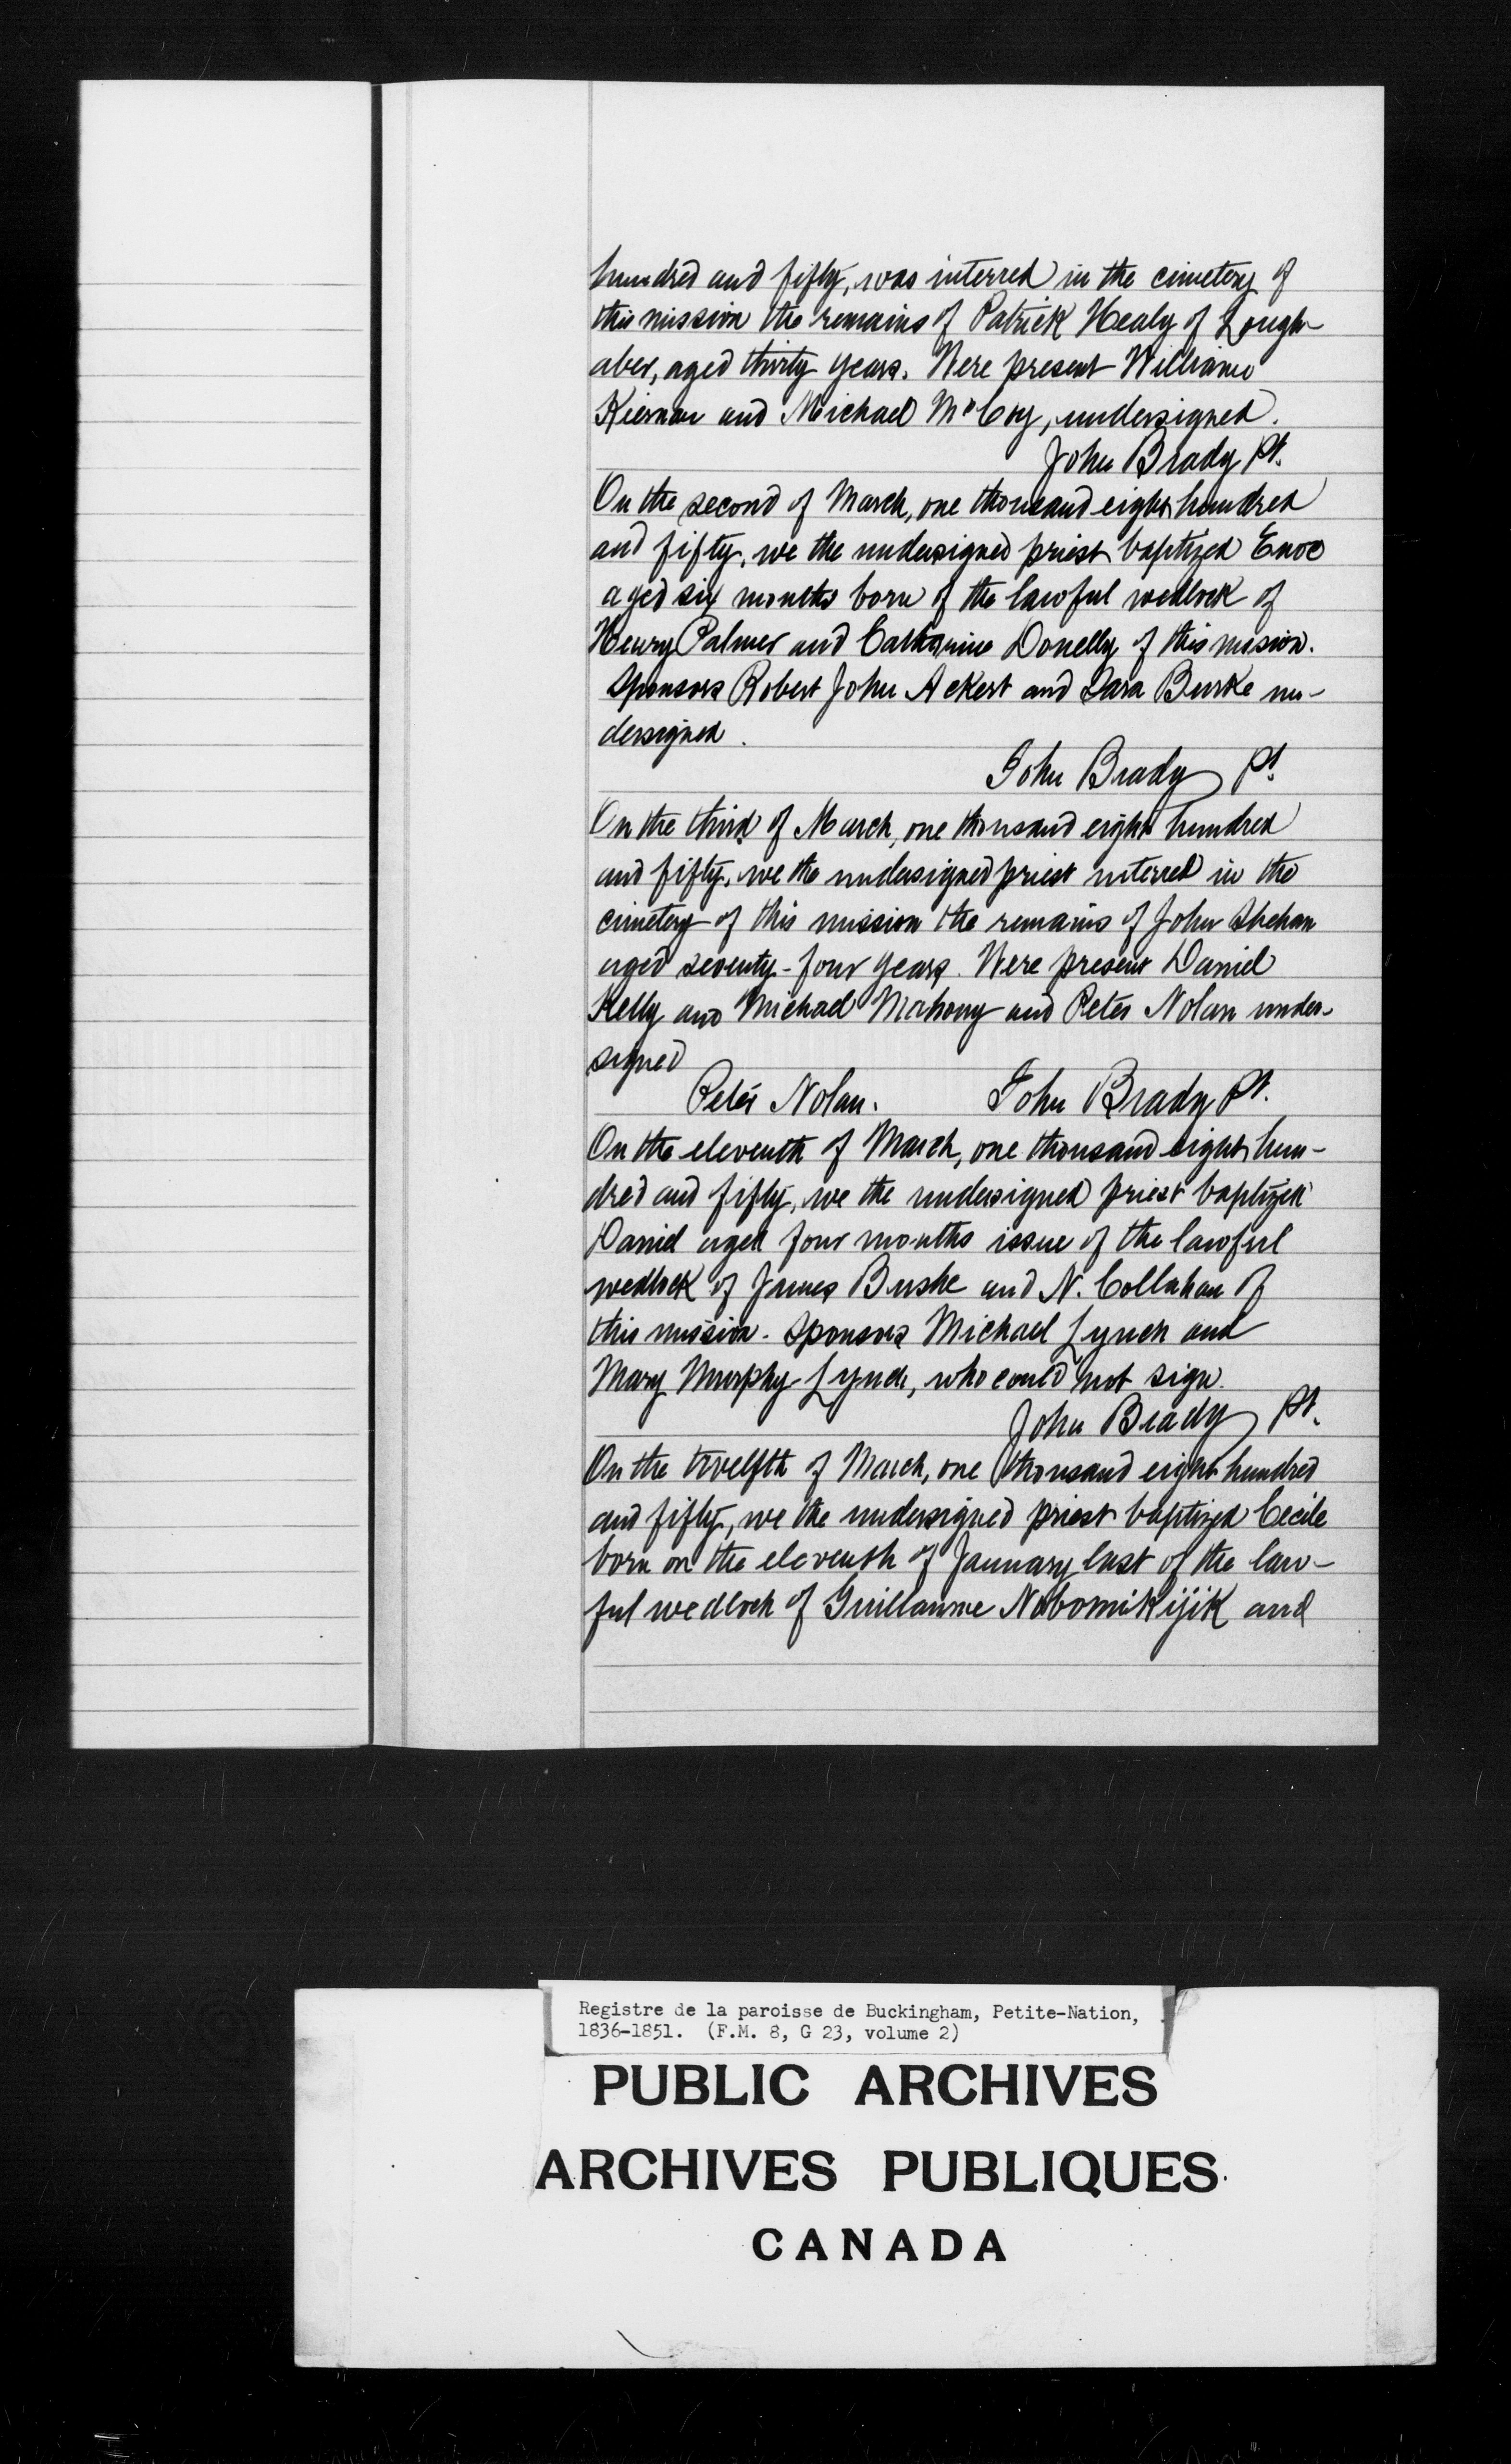 hundred and fifty, was interred in the cimetery of
this mission the remains of Patrick Healy of Lough-
aber, aged thirty years. Were present William
Kiernan and Michael McCoy, undersigned.
John Brady Pt.
On the second of March, one thousand eight hundred
and fifty, we the undersigned priest baptized Enoc
aged six months born of the lawful wedlock of
Henry Palmer and Catharine Donelly of this mission.
Sponsors Robert John Ackert and Sara Burke un-
dersigned.
John Brady Pt.
On the third of March, one thousand eight hundred
and fifty, we the undersigned priest interred in the
cimetery of this mission the remains of John Shehan
aged seventy-four years. Were present Daniel
Kelly and Michael Mahony and Peter Nolan under-
signed
Peter Nolan. John Brady Pt.
On the eleventh of March, one thousand eight hun-
dred and fifty, we the undersigned priest baptized
Daniel aged four months issue of the lawful
wedlock of James Burke and N. Collahan of
this mission. Sponsors Michael Lynch and
Mary Murphy Lynch, who could not sign.
John Brady Pt.
On the twelfth of March, one thousand eight hundred
and fifty, we the undersigned priest baptized Cecile
born on the eleventh of January last of the law-
ful wedlock of Guillaume Nabomikijik and
Registre de la paroisse de Buckingham, Petite-Nation,
1836-1851. (F.M. 8, G 23, volume 2)
PUBLIC ARCHIVES
ARCHIVES PUBLIQUES
CANADA